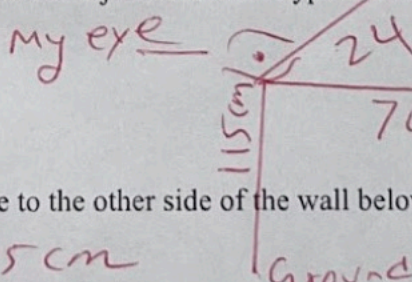 My eye
24
115cm
7
e to the other side of the wall belo
5 cm
Ground